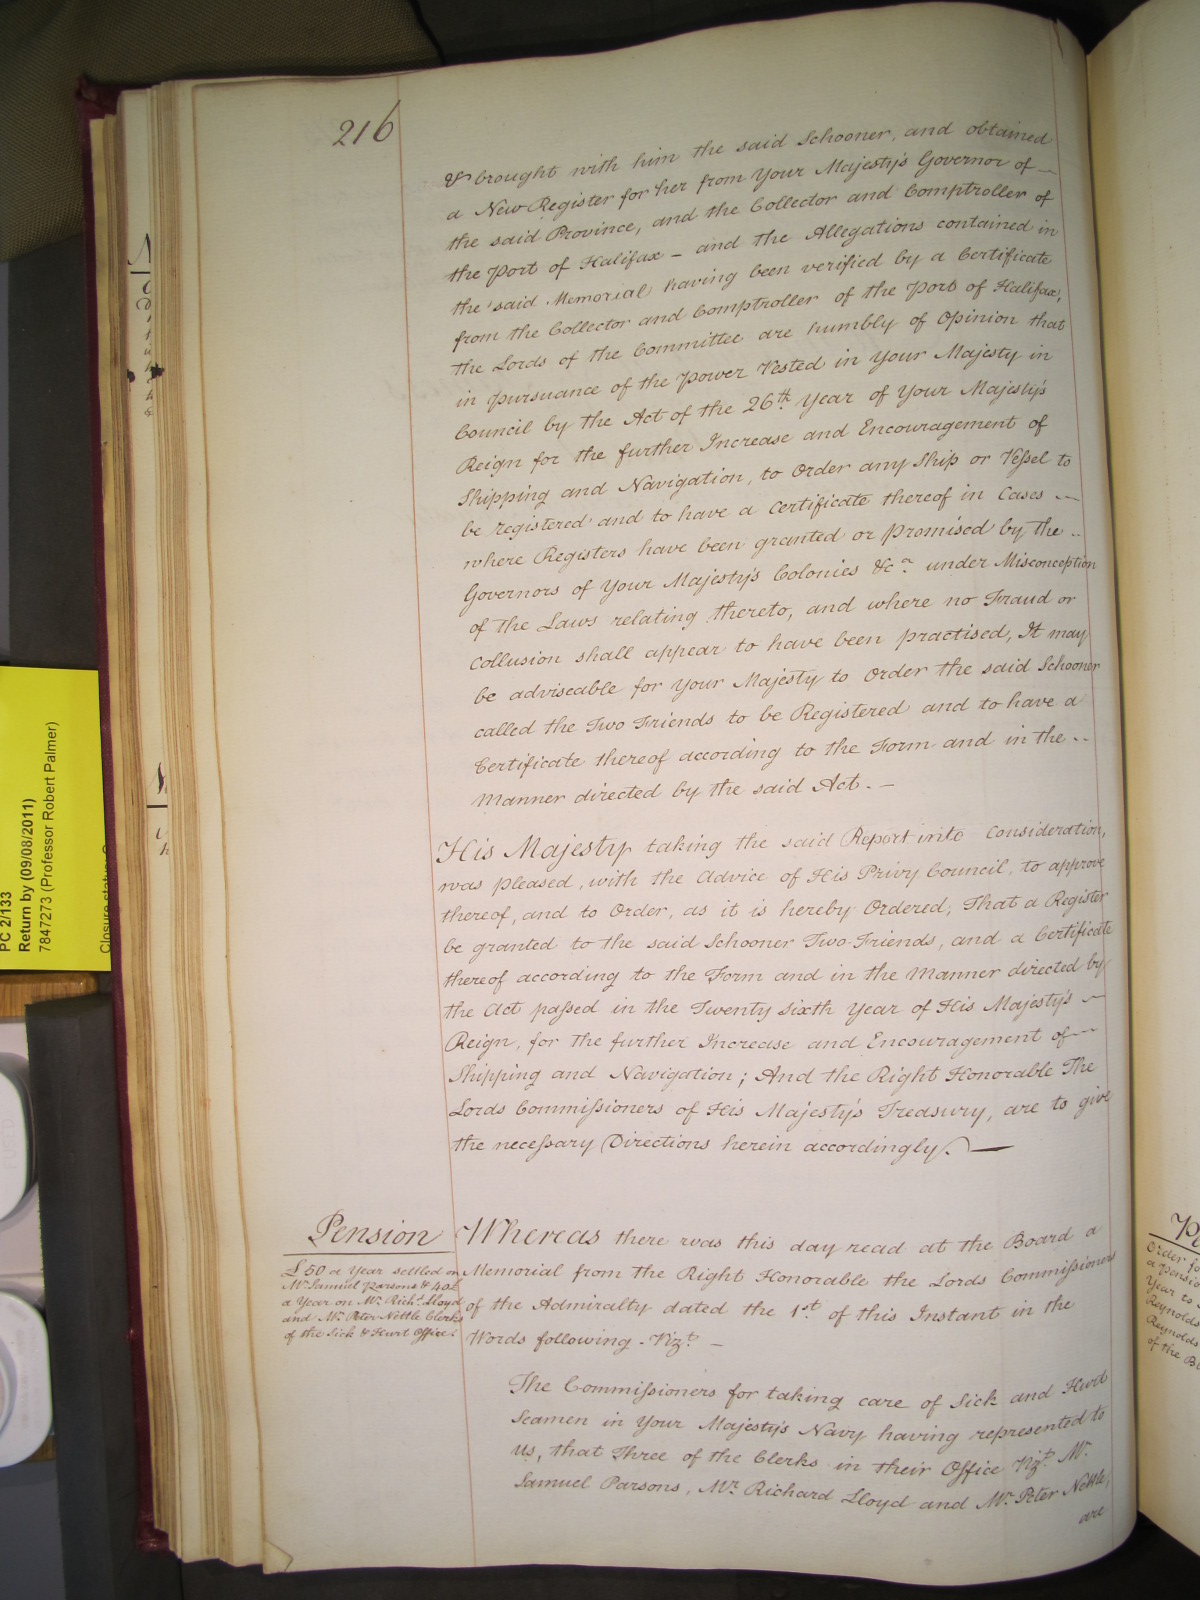 216
& brought with him the said Schooner, and obtained
a New Register for her from Your Majesty's Governor of —
the said Province, and the Collector and Comptroller of
the Port of Halifax — and the Allegations contained in
the said Memorial having been verified by a Certificate
from the Collector and Comptroller of the Port of Halifax,
the Lords of the Committee are humbly of Opinion that
in pursuance of the Power Vested in Your Majesty in
Council by the Act of the 26th Year of Your Majesty's
Reign for the further Increase and Encouragement of
Shipping and Navigation, to Order any Ship or Vessel to
be registered and to have a Certificate thereof in Cases —
where Registers have been granted or promised by the ..
Governors of Your Majesty's Colonies &ca. under Misconception
of the Laws relating thereto, and where no Fraud or
Collusion shall appear to have been practised, It may
be adviseable for Your Majesty to Order the said Schooner
called the Two Friends to be Registered and to have a
Certificate thereof according to the Form and in the ..
Manner directed by the said Act. —
His Majesty taking the said Report into Consideration,
was pleased, with the Advice of His Privy Council, to approve
thereof, and to Order, as it is hereby Ordered, That a Register
be granted to the said Schooner Two Friends, and a Certificate
thereof according to the Form and in the Manner directed by
the Act passed in the Twenty Sixth Year of His Majesty's —
Reign, for the further Increase and Encouragement of —
Shipping and Navigation; And the Right Honorable The
Lords Commissioners of His Majesty's Treasury, are to give
the necessary Directions herein accordingly. —
Pension
£50 a Year settled on
Mr. Samuel Parsons & 40£
a Year on Mr. Richd. Lloyd
and Mr. Peter Nettle Clerks
of the Sick & Hurt Office.
Whereas there was this day read at the Board a
Memorial from the Right Honorable the Lords Commissioners
of the Admiralty dated the 1st of this Instant in the
Words following - Vizt. —
The Commissioners for taking care of Sick and Hurt
Seamen in Your Majesty's Navy having represented to
us, that Three of the Clerks in their Office Vizt. Mr.
Samuel Parsons, Mr. Richard Lloyd and Mr. Peter Nettle,
are
PC 2/133
Return by (09/08/2011)
7847273 (Professor Robert Palmer)
Closure status:
Order fo
a Pensio
Year to
Reynolds
Reynolds
of the B